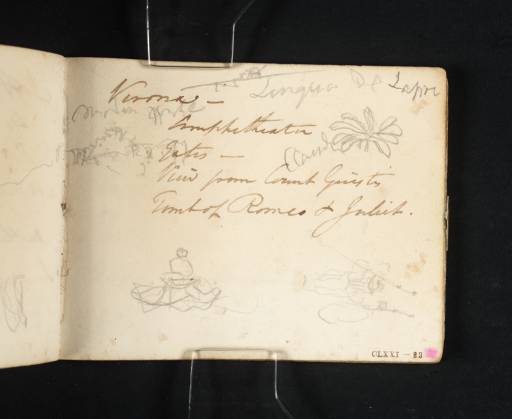 Lingua De Lapre
Verona –
Amphitheater
Gates –
View from Count Giusti
Tomb of Romeo & Juliet.
CLXXI – 23